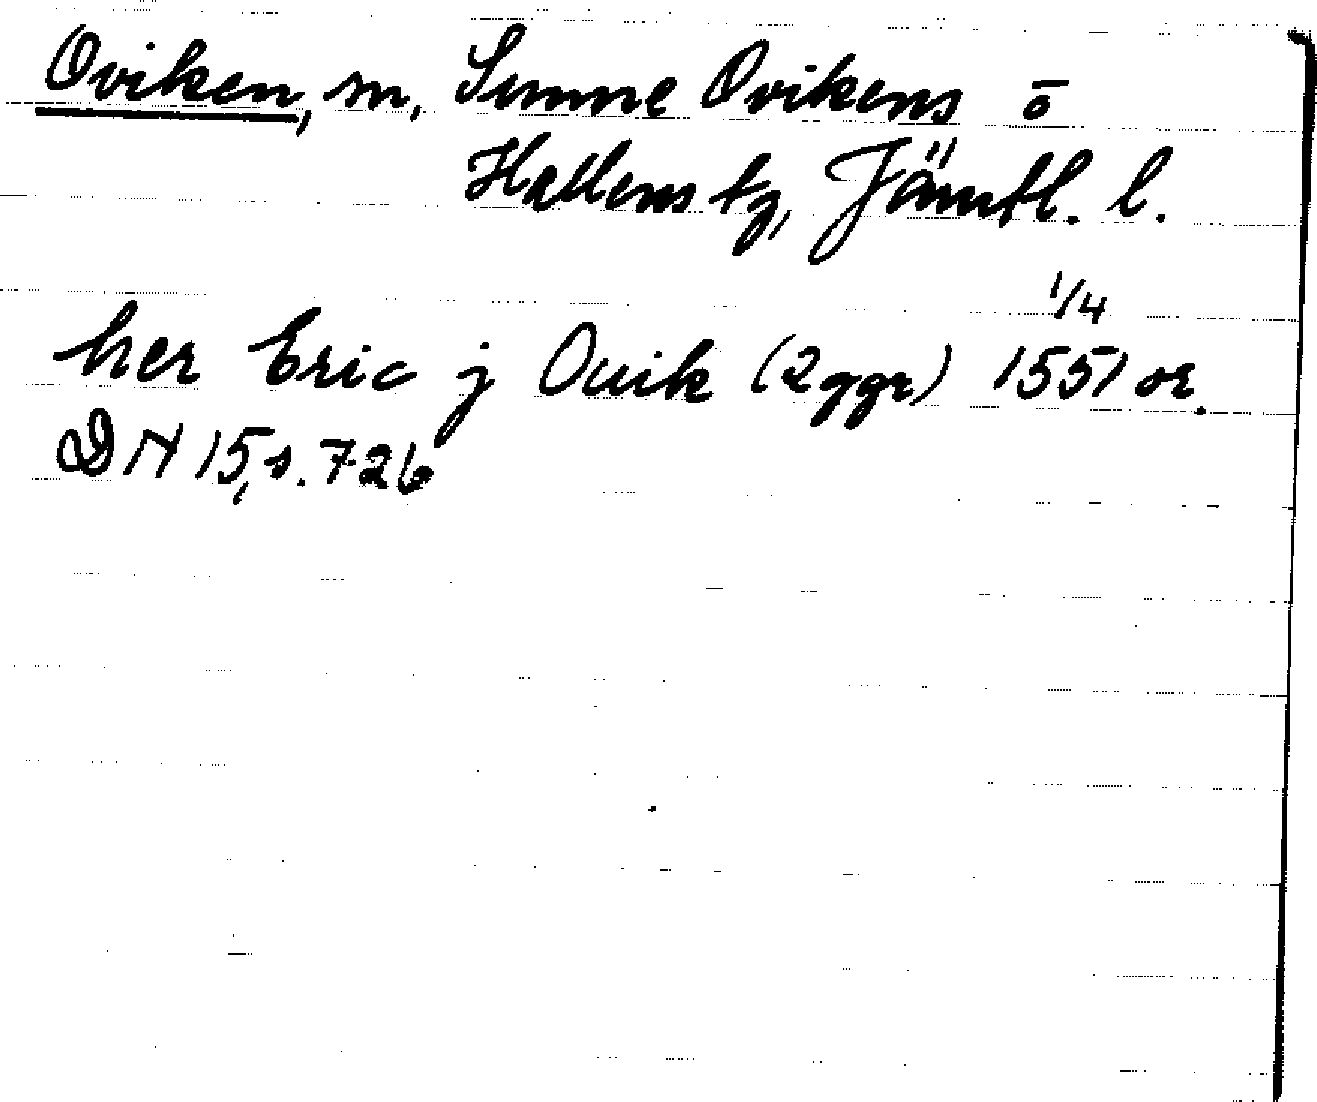 Oviken, sn, Sunne Ovikens o
Hallens tg, Jämtl. l.
her Eric j Ouik (2 ggr) 1/4 1557 or.
DN 15, s. 726